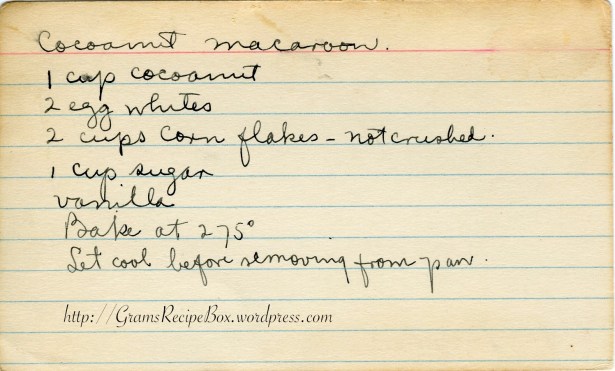 Cocoanut macaroon.
1 cup cocoanut
2 egg whites
2 cups Corn flakes - not crushed.
1 cup sugar
vanilla
Bake at 275°
Let cool before removing from pan.
http://GramsRecipeBox.wordpress.com